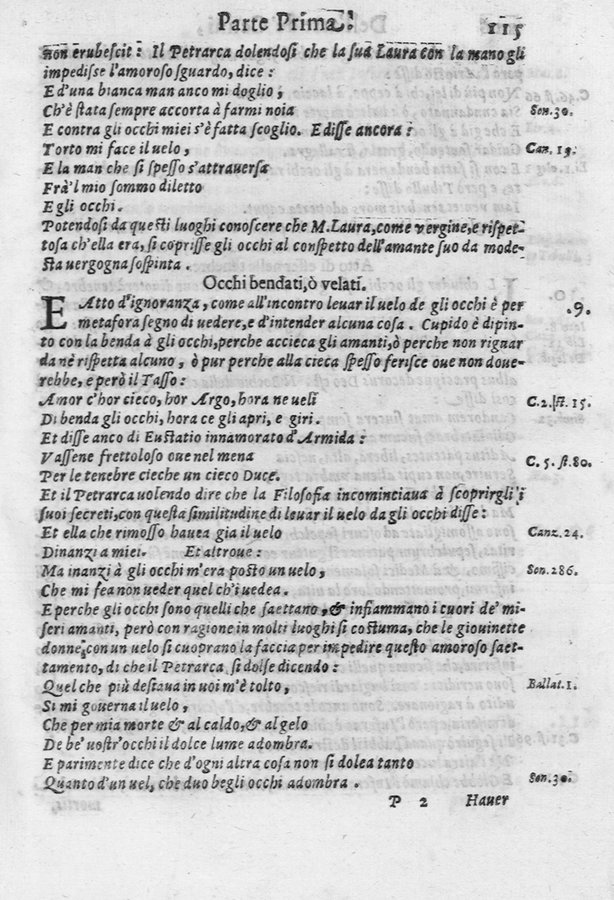 Parte Prima. 115
non erubescit: Il Petrarca dolendosi che la sua Laura con la mano gli
impedisse l'amoroso sguardo, dice:
E d'una bianca man anco mi doglio,
Ch'è stata sempre accorta à farmi noia Son. 30.
E contra gli occhi miei s'è fatta scoglio. E disse ancora:
Torto mi face il uelo, Can. 13.
E la man che sì spesso s'attrauersa
Frà'l mio sommo diletto
E gli occhi.
Potendosi da questi luoghi conoscere che M. Laura, come vergine, e rispet-
tosa ch'ella era, si coprisse gli occhi al conspetto dell'amante suo da mode-
sta uergogna sospinta.
Occhi bendati, ò velati.
E Atto d'ignoranza, come all'incontro leuar il uelo de gli occhi è per .9.
metafora segno di uedere, e d'intender alcuna cosa. Cupido è dipin-
to con la benda à gli occhi, perche accieca gli amanti, ò perche non riguar
da nè rispetta alcuno, ò pur perche alla cieca spesso ferisce oue non doue-
rebbe, e però il Tasso:
Amor c'hor cieco, hor Argo, hora ne ueli C.2. st. 15.
Di benda gli occhi, hora ce gli apri, e giri.
Et disse anco di Eustatio innamorato d'Armida:
Vassene frettoloso oue nel mena C. 5. st. 80.
Per le tenebre cieche un cieco Duce.
Et il Petrarca uolendo dire che la Filosofia incominciaua à scoprirgli i
suoi secreti, con questa similitudine di leuar il uelo da gli occhi disse:
Et ella che rimosso hauea gia il uelo Canz. 24.
Dinanzi a miei. Et altroue:
Ma inanzi à gli occhi m'era posto un uelo, Son. 286.
Che mi fea non ueder quel ch'i uedea.
E perche gli occhi sono quelli che saettano, & infiammano i cuori de' mi-
seri amanti, però con ragione in molti luoghi si costuma, che le giouinette
donne, con un uelo si cuoprano la faccia per impedire questo amoroso saet-
tamento, di che il Petrarca si dolse dicendo:
Quel che più destaua in uoi m'è tolto, Ballat. 1.
Si mi gouerna il uelo,
Che per mia morte & al caldo, & al gelo
De be' uostr'occhi il dolce lume adombra.
E parimente dice che d'ogni altra cosa non si dolea tanto
Quanto d'un uel, che duo begli occhi adombra. Son. 30.
P 2 Hauer